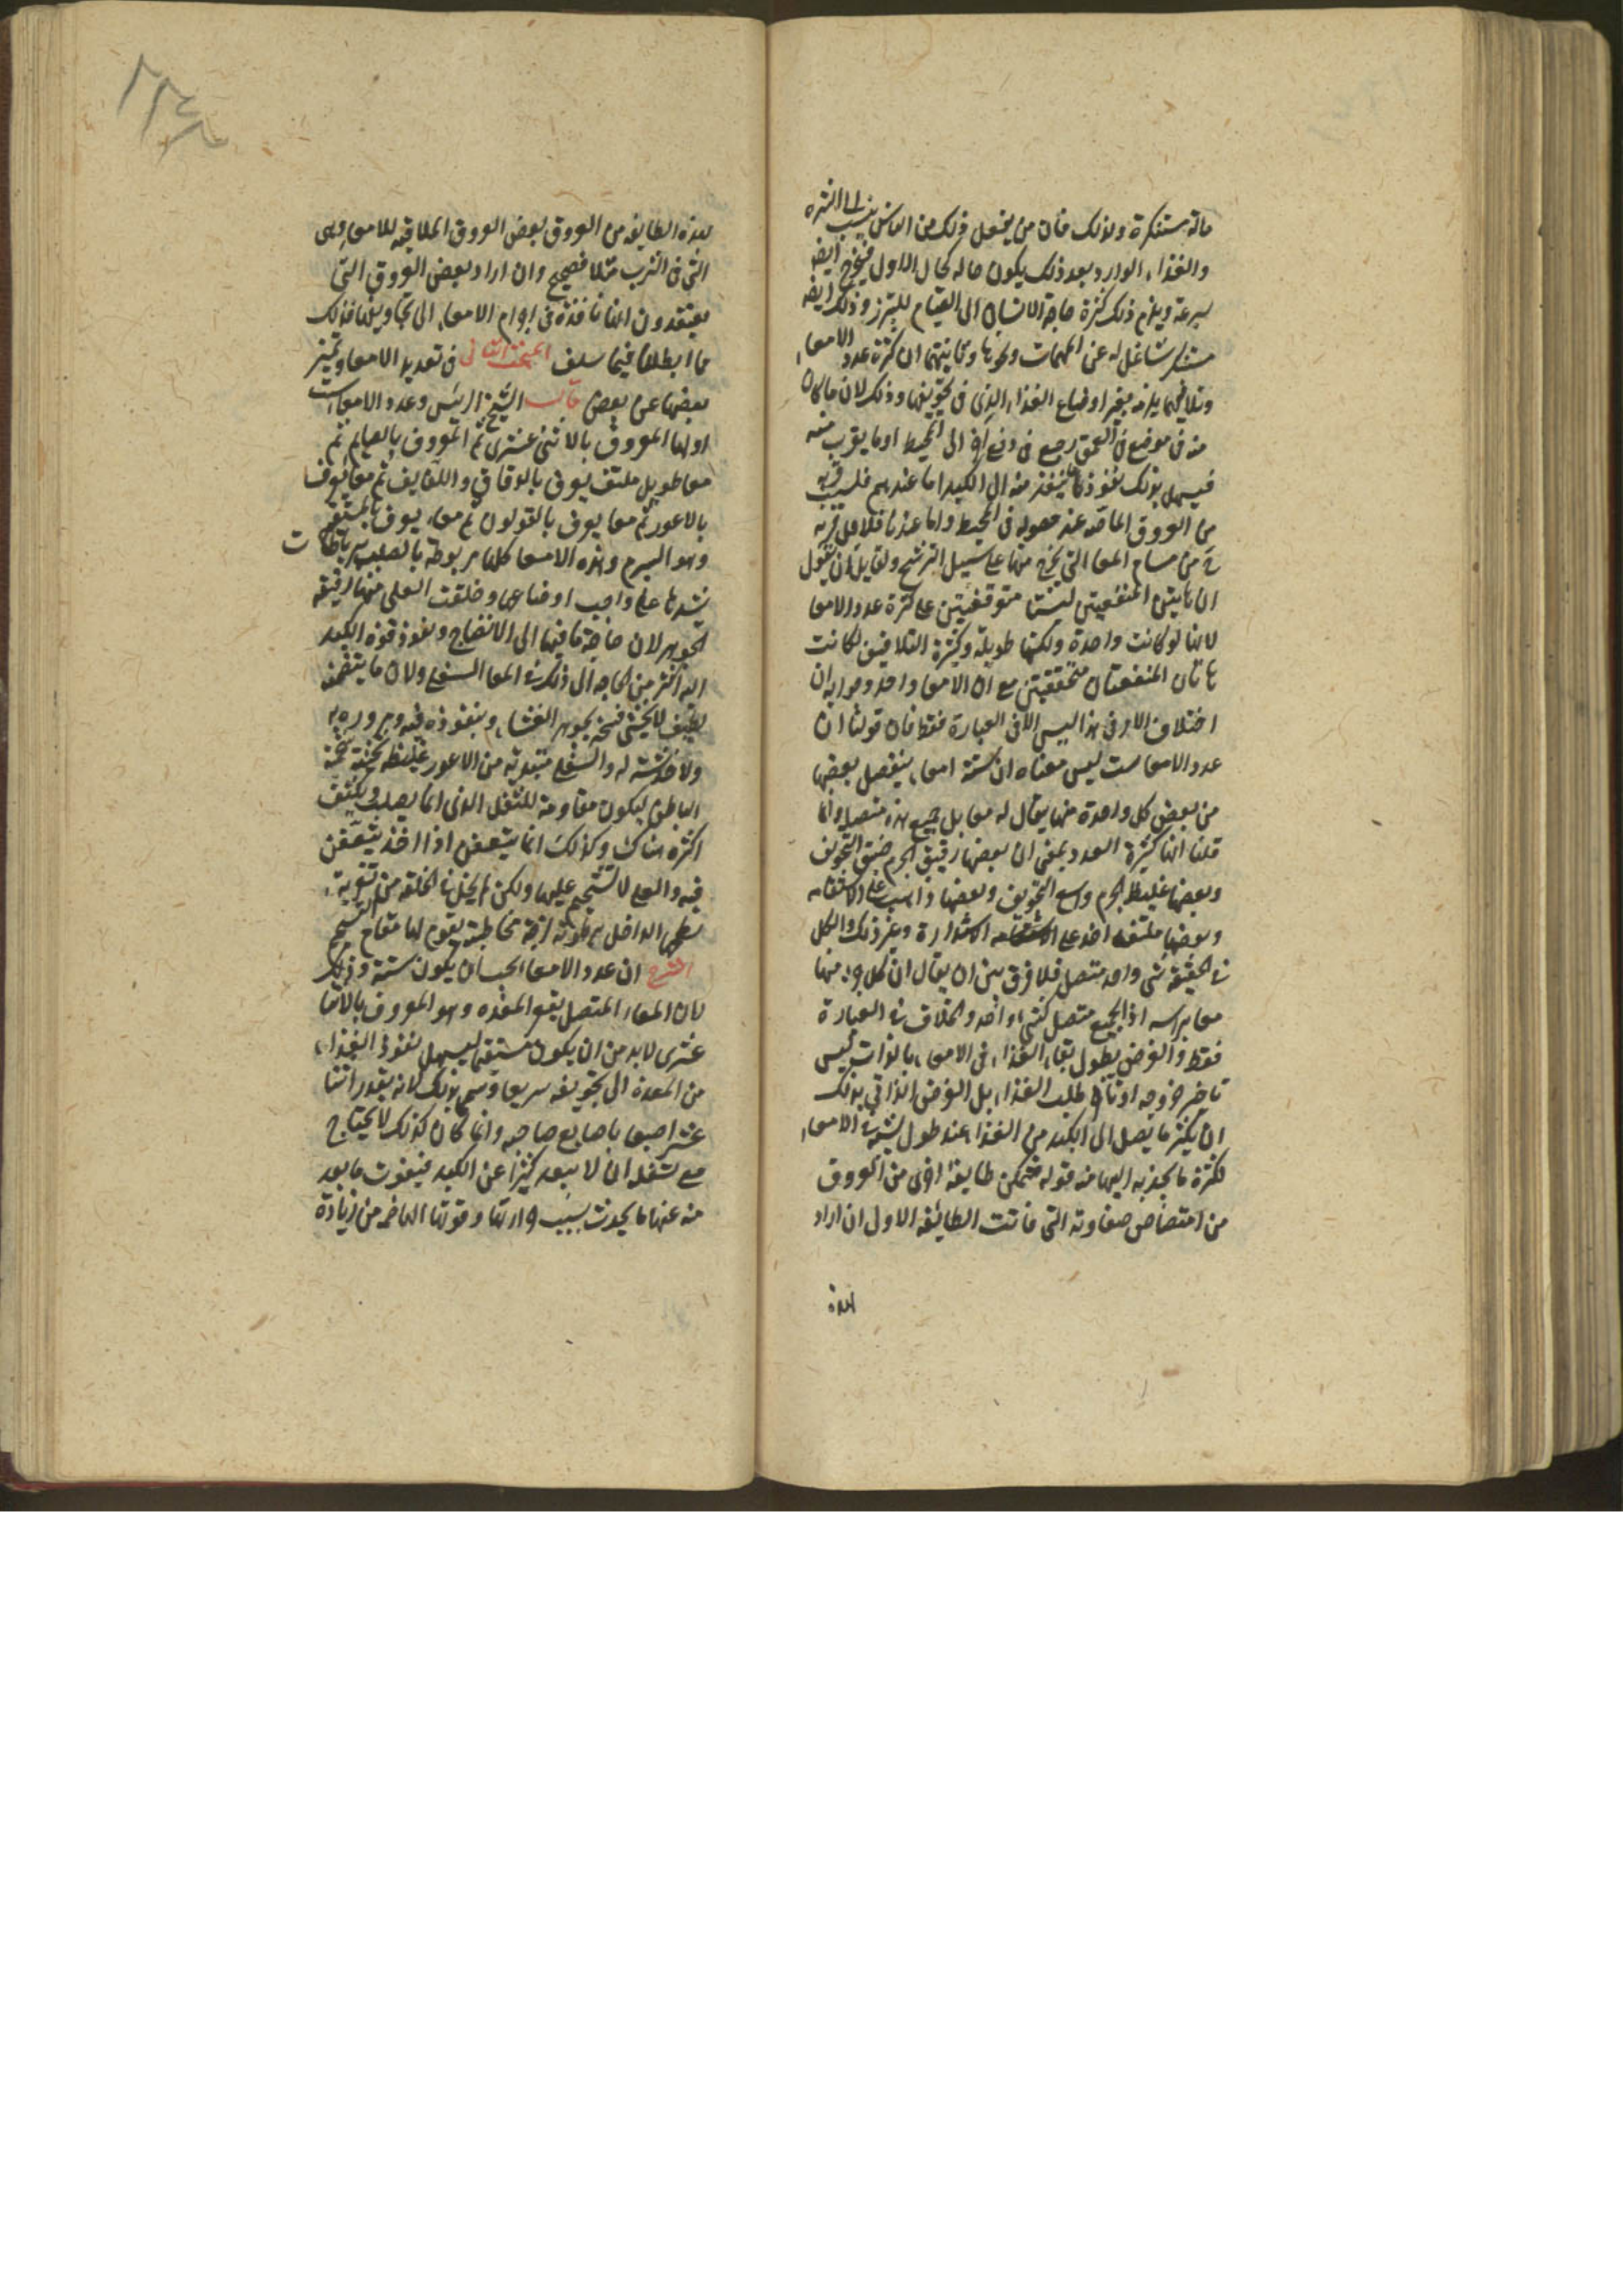 حالة مستنكرة ولذلك فان من يفعل ذلك من الناس ينسب الى الشره
والغذاء الوارد بعد ذلك يكون حاله كحال الاول فيخرج ايضا
بسرعة ويلزم ذلك كثرة حاجة الانسان الى القيام للتبرز وذلك ايضا
مستنكر شاغل له عن المهمات ونحوها وثانيتهما ان كثرة عدد الامعاء
وتلافيفها يلزمه تغير اوضاع الغذاء الذى فى تجويفها وذلك لان ما كان
منه فى موضع فى العمق يرجع فى وضع اخر الى المحيط او ما يقرب منه
فيسهل بذلك نفوذ ما ينفذ منه الى الكبد اما عندهم فلسبب قربه
من العروق الماصه عند حصوله فى المحيط واما عندنا فلاجل قربه
من مسام المعا التى يخرج منها على سبيل الترشح ولقايل ان يقول
ان هاتين المنفعتين ليستا متوقفتين على كثرة عدد الامعا
لانها لو كانت واحدة ولكنها طويلة وكثيرة التلافيف لكانت
هاتان المنفعتان متحققتين مع ان الامعا واحد وجوابه ان
اختلاف الامر فى هذا ليس الا فى العبارة فقط فان قولنا ان
عدد الامعا ست ليس معناه ان ستة امعاء ينفصل بعضها
من بعض كل واحدة منها يقال له معا بل جميع هذه متصل وانما
قلنا انها كثيرة العدد بمعنى ان بعضها رقيق الجرم ضيق التجويف
وبعضها غليظ الجرم واسع التجويف وبعضها ذاهب على الاستقامه
وبعضها ملتف اخذ على الاستقامه الاستدارة وغير ذلك والكل
فى الحقيقة شى واحد متصل فلا فرق بين ان يقال ان كل منها
معا براسه اذ الجميع متصل كشى واحد والخلاف فى العبارة
فقط والغرض بطول بقاء الغذاء فى الامعاء بالذات ليس
تاخير خروجه او تاخر طلب الغذاء بل الغرض الذاتى بذلك
ان يكثر ما يصل الى الكبد من الغذا عند طول لبثه فى الامعاء
لكثرة ما تجذبه اليها منه قوله فتمكن طايفة اخرى من العروق
من امتصاص صفاوته التى فاتت الطائفه الاول ان اراد
بهذه
لهذه الطايفه من العروق بعض العروق الملاقيه للامعا وهى
التى فى الثرب مثلا فصحيح وان اراد بعض العروق التى
يعتقدون انها نافذة فى اجرام الامعاء الى تجاويفها فذلك
مما ابطلناه فيما سلف المبحث الثانى فى تعديد الامعا وتمييز
بعضها عن بعض قال الشيخ الرئيس وعدد الامعا ست
اولها المعروف بالاثنى عشرى ثم المعروف بالصايم ثم
معا طويل ملتف يعرف بالدقاق واللفايف ثم معا يعرف
بالاعور ثم معا يعرف بالقولون ثم معاء يعرف بالمستقيم
وهو السرم وهذه الامعا كلها مربوطة بالصلب برباطات
تشدها على واجب اوضاعها وخلقت العلى منها رقيقه
الجوهر لان حاجة ما فيها الى الانضاج ونفوذ قوة الكبد
اليه اكثر من الحاجه الى ذلك فى المعا السفلى ولان ما يتضمنه
لطيف لا يخشى فسخه بجوهر المعا بنفوذه فيه ومروره به
ولا خدشه له والسفلى مبتدئه من الاعور غليظه ثخينة شحمة
الباطن ليكون مقاومة للثفل الذى انما يصلب ويكثف
اكثره هناك وكذلك انما يتعفن اذا اخذ يتعفن
فيه والعلى لا شحم عليها ولكن لم يخل فى الخلقة من تغرية
سطحها الداخل برطوبه لزجة مخاطية يقوم لها مقام الشحم
الشرح ان عدد الامعا يجب ان يكون ستة وذلك
لان المعا المتصل بقعر المعده وهو المعروف بالاثنا
عشرى لابد من ان يكون مستقيما ليسهل نفوذ الغذاء
من المعدة الى تجويفه سريعا وسمى بذلك لانه بقدر اثنتا
عشر اصبعا باصابع صاحبه وانما كان كذلك لا يحتاج
مع تسفله ان لا يبعد كثيرا عن الكبد فيفوت ما بعد
منه عنها ما يحدث بسبب حرارتها وقوتها الهاضمه من زيادة